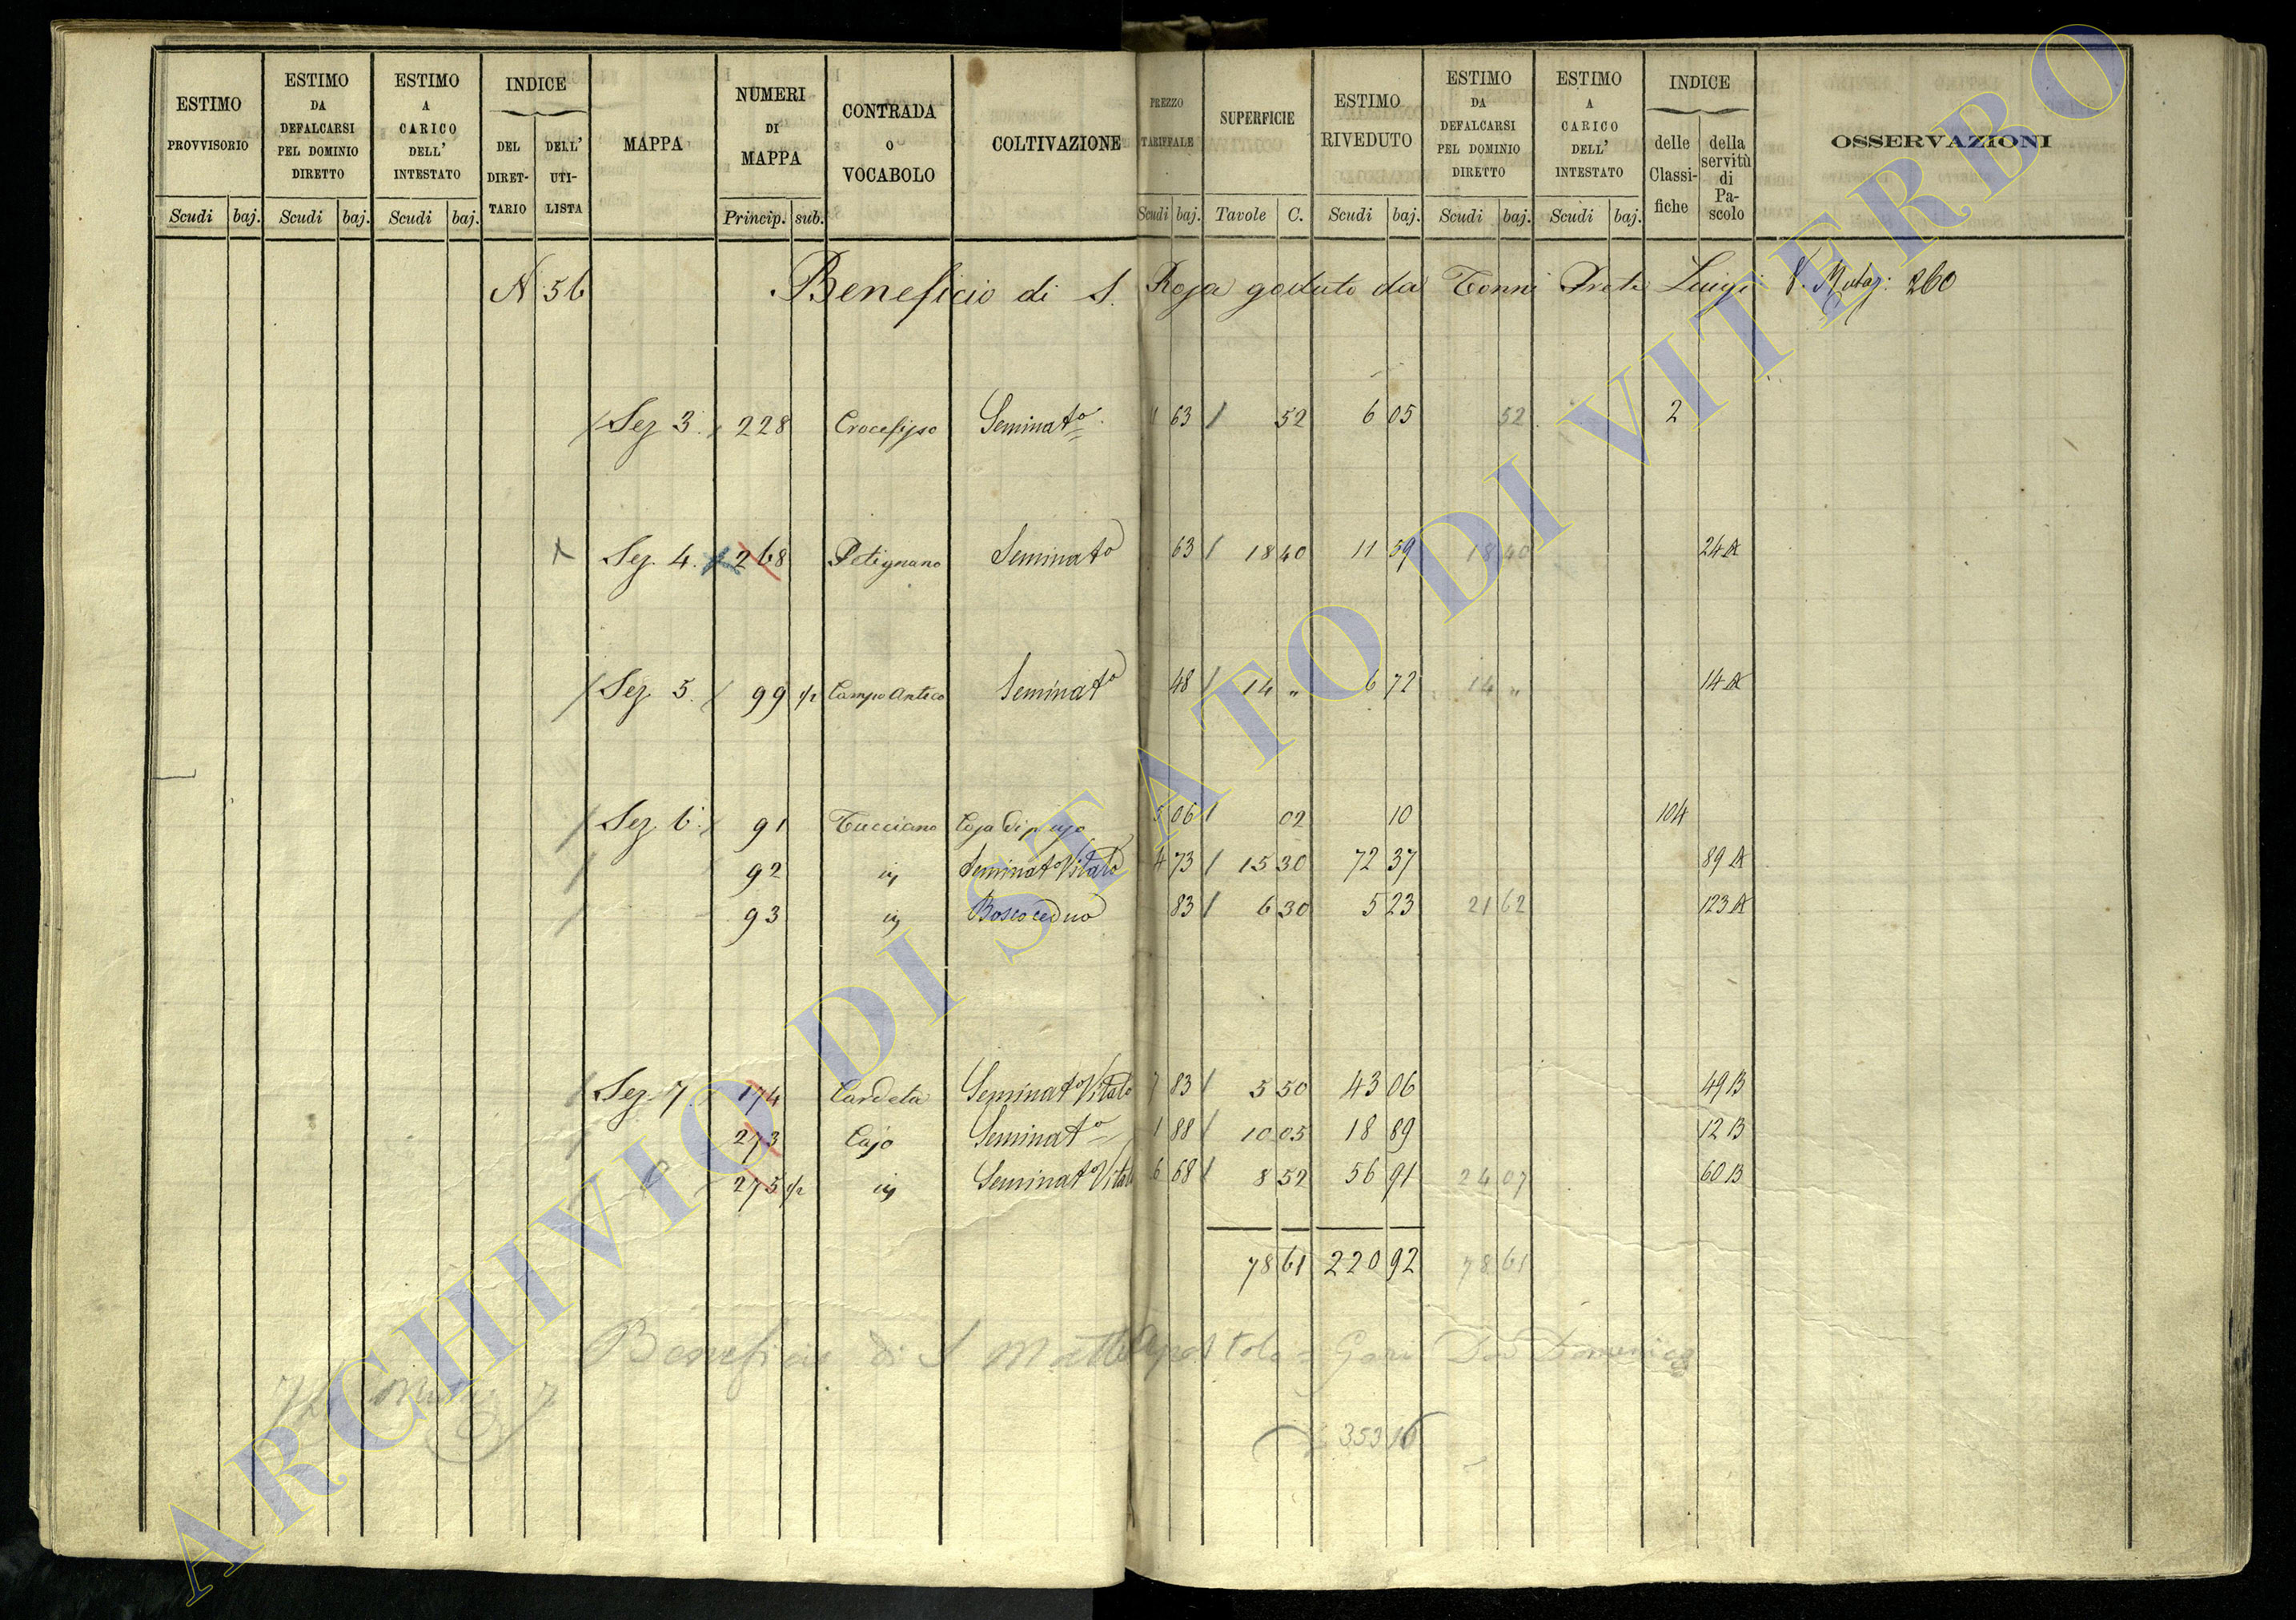 ESTIMO PROVVISORIO Scudi baj.
ESTIMO DA DEFALCARSI PEL DOMINIO DIRETTO Scudi baj.
ESTIMO A CARICO DELL' INTESTATO Scudi baj.
INDICE DEL DIRETTARIO DELL' UTILISTA
MAPPA
NUMERI DI MAPPA Princip. sub.
CONTRADA O VOCABOLO
COLTIVAZIONE
PREZZO TARIFFALE Scudi baj.
SUPERFICIE Tavole C.
ESTIMO RIVEDUTO Scudi baj.
ESTIMO DA DEFALCARSI PEL DOMINIO DIRETTO Scudi baj.
ESTIMO A CARICO DELL' INTESTATO Scudi baj.
INDICE delle Classifiche della servitù di Pascolo
OSSERVAZIONI
N 56 Beneficio di S. Rosa goduto da Tonni Prete Luigi V. Mutaz: 260
Sez 3. 228 Crocefisso Seminato 1 63 52 6 05 52 2
Sez. 4. 268 Petignano Seminato 63 18 40 11 59 18 40 24 A
Sez. 5. 99 1/2 Campo Antico Seminato 48 14 " 6 72 14 " 14 A
Sez. 6. 91 Tucciano Casa di p. uso 5 06 02 10 104
92 id Seminato Vitato 4 73 15 30 72 37 89 A
93 id Bosco ceduo 83 6 30 5 23 21 62 123 A
Sez. 7. 174 Cardeta Seminato Vitato 7 83 5 50 43 06 49 B
273 Cajo Seminato 1 88 10 05 18 89 12 B
275 1/2 id Seminato Vitato 6 68 8 52 56 91 24 07 60 B
78 61 220 92 78 61
Beneficio di S Matteo Apostolo = Gari Don Domenico
353 16
ARCHIVIO DI STATO DI VITERBO